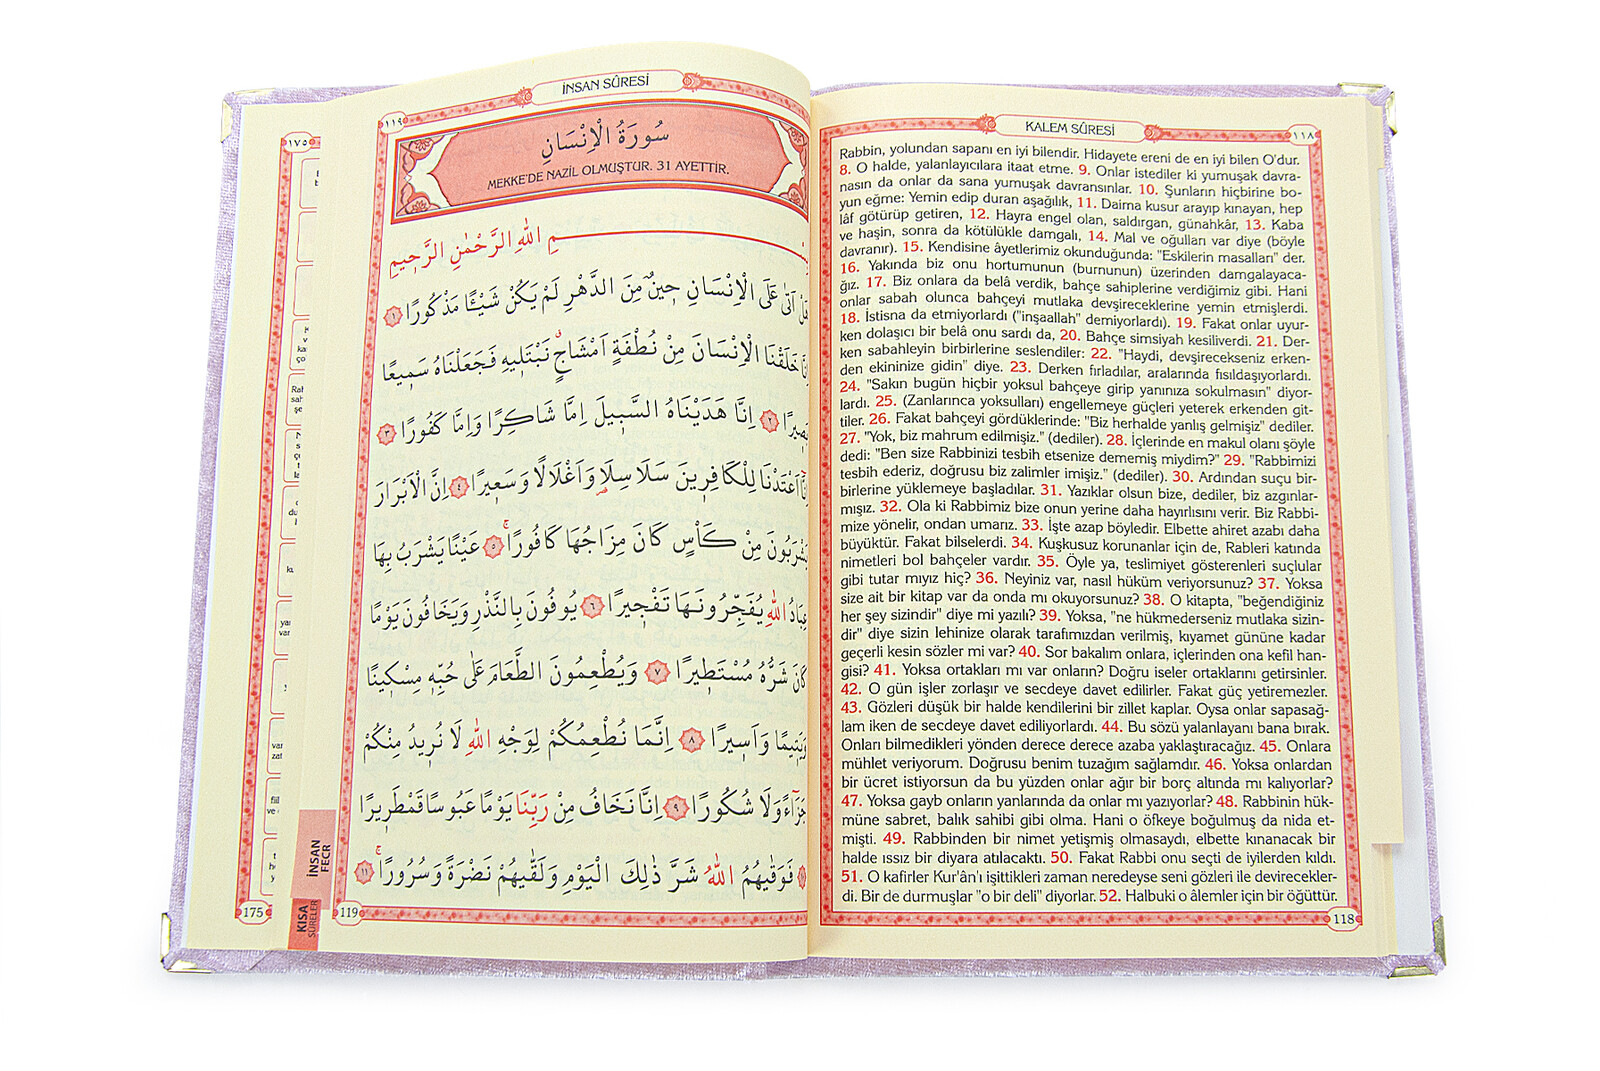 KALEM SÛRESİ
١١٨
Rabbin, yolundan sapanı en iyi bilendir. Hidayete ereni de en iyi bilen O'dur.
8. O halde, yalanlayıcılara itaat etme. 9. Onlar istediler ki yumuşak davra-
nasın da onlar da sana yumuşak davransınlar. 10. Şunların hiçbirine bo-
yun eğme: Yemin edip duran aşağılık, 11. Daima kusur arayıp kınayan, hep
lâf götürüp getiren, 12. Hayra engel olan, saldırgan, günahkâr, 13. Kaba
ve haşin, sonra da kötülükle damgalı, 14. Mal ve oğulları var diye (böyle
davranır). 15. Kendisine âyetlerimiz okunduğunda: "Eskilerin masalları" der.
16. Yakında biz onu hortumunun (burnunun) üzerinden damgalayaca-
ğız. 17. Biz onlara da belâ verdik, bahçe sahiplerine verdiğimiz gibi. Hani
onlar sabah olunca bahçeyi mutlaka devşireceklerine yemin etmişlerdi.
18. İstisna da etmiyorlardı ("inşaallah" demiyorlardı). 19. Fakat onlar uyur-
ken dolaşıcı bir belâ onu sardı da, 20. Bahçe simsiyah kesiliverdi. 21. Der-
ken sabahleyin birbirlerine seslendiler: 22. "Haydi, devşirecekseniz erken-
den ekininize gidin" diye. 23. Derken fırladılar, aralarında fısıldaşıyorlardı.
24. "Sakın bugün hiçbir yoksul bahçeye girip yanınıza sokulmasın" diyor-
lardı. 25. (Zanlarınca yoksulları) engellemeye güçleri yeterek erkenden git-
tiler. 26. Fakat bahçeyi gördüklerinde: "Biz herhalde yanlış gelmişiz" dediler.
27. "Yok, biz mahrum edilmişiz." (dediler). 28. İçlerinde en makul olanı şöyle
dedi: "Ben size Rabbinizi tesbih etsenize dememiş miydim?" 29. "Rabbimizi
tesbih ederiz, doğrusu biz zalimler imişiz." (dediler). 30. Ardından suçu bir-
birlerine yüklemeye başladılar. 31. Yazıklar olsun bize, dediler, biz azgınlar-
mışız. 32. Ola ki Rabbimiz bize onun yerine daha hayırlısını verir. Biz Rabbi-
mize yönelir, ondan umarız. 33. İşte azap böyledir. Elbette ahiret azabı daha
büyüktür. Fakat bilselerdi. 34. Kuşkusuz korunanlar için de, Rableri katında
nimetleri bol bahçeler vardır. 35. Öyle ya, teslimiyet gösterenleri suçlular
gibi tutar mıyız hiç? 36. Neyiniz var, nasıl hüküm veriyorsunuz? 37. Yoksa
size ait bir kitap var da onda mı okuyorsunuz? 38. O kitapta, "beğendiğiniz
her şey sizindir" diye mi yazılı? 39. Yoksa, "ne hükmederseniz mutlaka sizin-
dir" diye sizin lehinize olarak tarafımızdan verilmiş, kıyamet gününe kadar
geçerli kesin sözler mi var? 40. Sor bakalım onlara, içlerinden ona kefil han-
gisi? 41. Yoksa ortakları mı var onların? Doğru iseler ortaklarını getirsinler.
42. O gün işler zorlaşır ve secdeye davet edilirler. Fakat güç yetiremezler.
43. Gözleri düşük bir halde kendilerini bir zillet kaplar. Oysa onlar sapasağ-
lam iken de secdeye davet ediliyorlardı. 44. Bu sözü yalanlayanı bana bırak.
Onları bilmedikleri yönden derece derece azaba yaklaştıracağız. 45. Onlara
mühlet veriyorum. Doğrusu benim tuzağım sağlamdır. 46. Yoksa onlardan
bir ücret istiyorsun da bu yüzden onlar ağır bir borç altında mı kalıyorlar?
47. Yoksa gayb onların yanlarında da onlar mı yazıyorlar? 48. Rabbinin hük-
müne sabret, balık sahibi gibi olma. Hani o öfkeye boğulmuş da nida et-
mişti. 49. Rabbinden bir nimet yetişmiş olmasaydı, elbette kınanacak bir
halde ıssız bir diyara atılacaktı. 50. Fakat Rabbi onu seçti de iyilerden kıldı.
51. O kafirler Kur'ân'ı işittikleri zaman neredeyse seni gözleri ile devirecekler-
di. Bir de durmuşlar "o bir deli" diyorlar. 52. Halbuki o âlemler için bir öğüttür.
118
İNSAN SÛRESİ
١١٩
سُورَةُ الْاِنْسَانِ
MEKKE'DE NAZİL OLMUŞTUR. 31 AYETTİR.
ـمِ اللّٰهِ الرَّحْمٰنِ الرَّحٖيمِ
اَتٰى عَلَى الْاِنْسَانِ حٖينٌ مِنَ الدَّهْرِ لَمْ يَكُنْ شَيْـًٔا مَذْكُورًا ١
خَلَقْنَا الْاِنْسَانَ مِنْ نُطْفَةٍ اَمْشَاجٍ نَبْتَلٖيهِ فَجَعَلْنَاهُ سَمٖيعًا
٢ اِنَّا هَدَيْنَاهُ السَّبٖيلَ اِمَّا شَاكِرًا وَاِمَّا كَفُورًا ٣
اَعْتَدْنَا لِلْكَافِرٖينَ سَلَاسِلَا وَاَغْلَالًا وَسَعٖيرًا ٤ اِنَّ الْاَبْرَارَ
يَشْرَبُونَ مِنْ كَأْسٍ كَانَ مِزَاجُهَا كَافُورًا ٥ عَيْنًا يَشْرَبُ بِهَا
عِبَادُ اللّٰهِ يُفَجِّرُونَهَا تَفْجٖيرًا ٦ يُوفُونَ بِالنَّذْرِ وَيَخَافُونَ يَوْمًا
كَانَ شَرُّهُ مُسْتَطٖيرًا ٧ وَيُطْعِمُونَ الطَّعَامَ عَلٰى حُبِّهٖ مِسْكٖينًا
وَيَتٖيمًا وَاَسٖيرًا ٨ اِنَّمَا نُطْعِمُكُمْ لِوَجْهِ اللّٰهِ لَا نُرٖيدُ مِنْكُمْ
جَزَاءً وَلَا شُكُورًا ٩ اِنَّا نَخَافُ مِنْ رَبِّنَا يَوْمًا عَبُوسًا قَمْطَرٖيرًا
فَوَقٰيهُمُ اللّٰهُ شَرَّ ذٰلِكَ الْيَوْمِ وَلَقّٰيهُمْ نَضْرَةً وَسُرُورًا ١١
119
İNSAN
FECR
KISA
SÛRELER
١٧٥
175